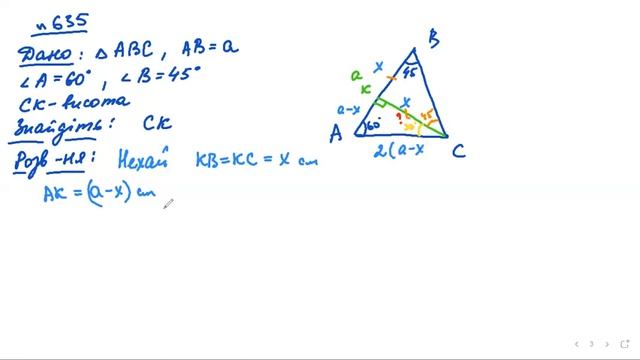 n 635
Дано: △ ABC, AB = a
∠A = 60°, ∠B = 45°
CK - висота
Знайдіть: CK
Розв-ня: Нехай KB = KC = x см
AK = (a-x) см
B
45
x
a
K
a-x
x
?
45
30
60°
A
C
2(a-x
3